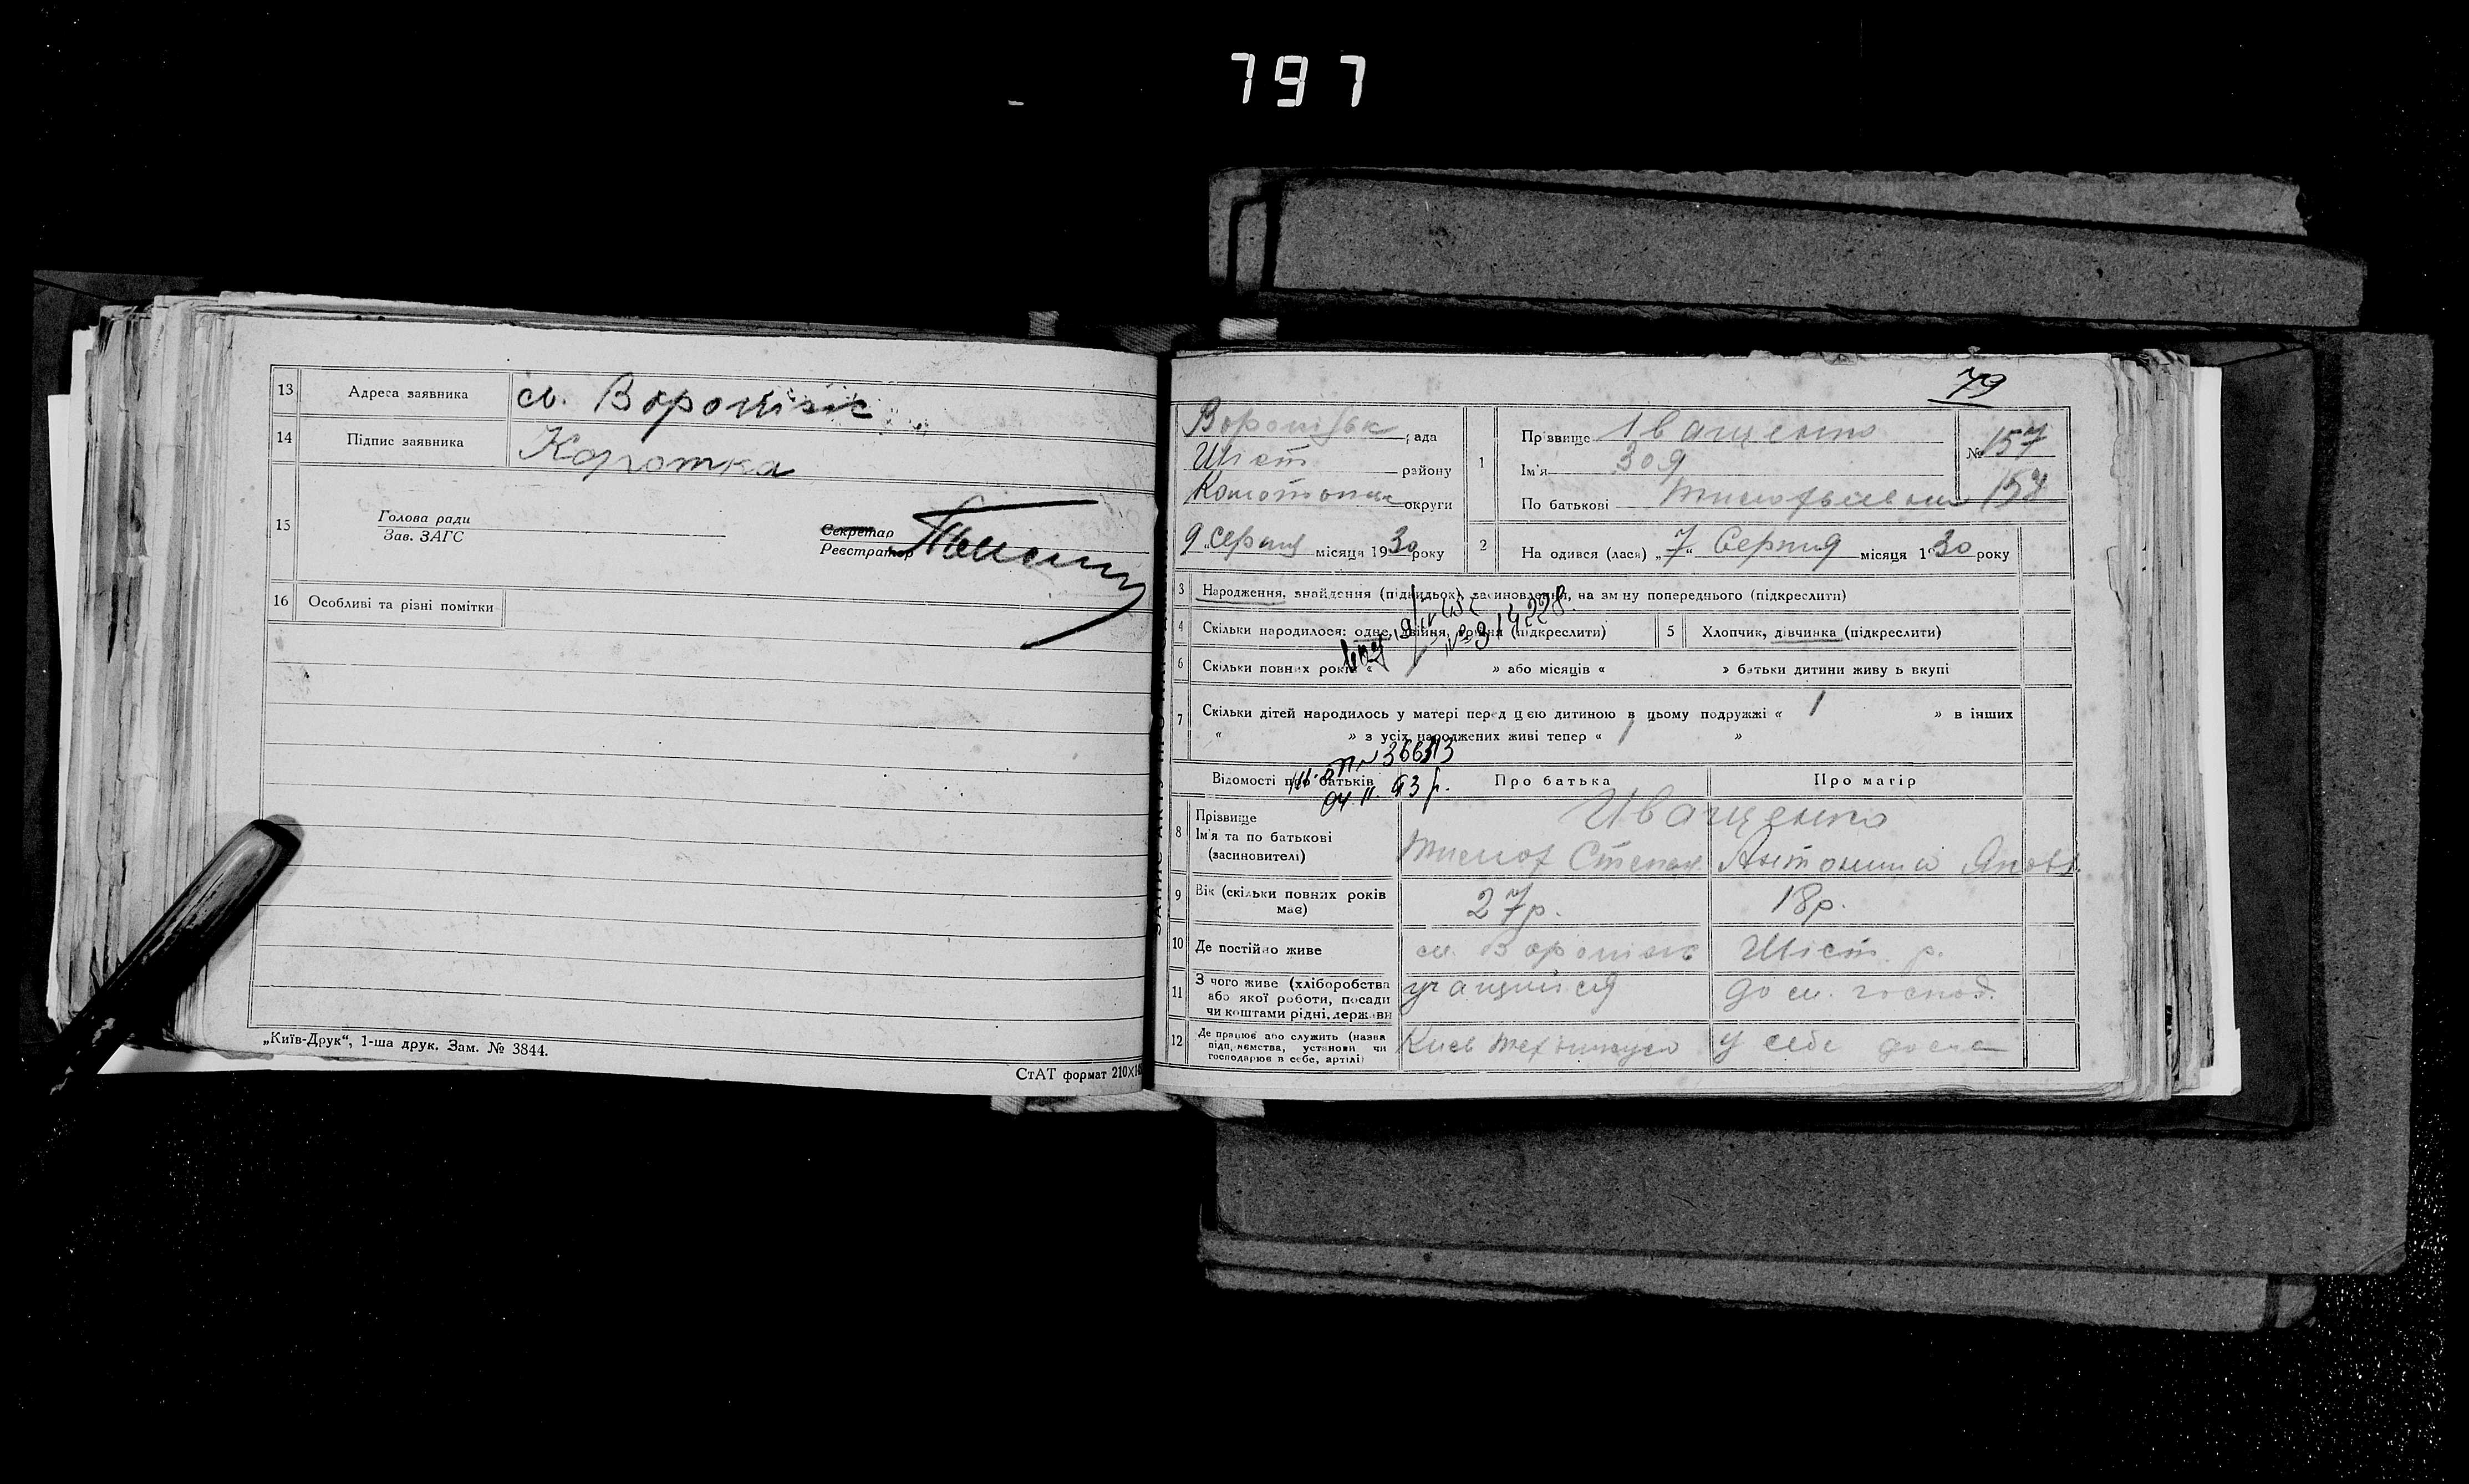 797
13 Адреса заявника см. Вороніж
14 Підпис заявника Коротка
15 Голова ради
Зав. ЗАГС
Секретар
Реєстратор
16 Особливі та різні помітки
„Київ-Друк“, 1-ша друк. Зам. № 3844.
СтАТ формат 210×1
79
рада
Шіст району
округи
9 серпня місяця 1930 року
1 Прізвище Іващенко
Ім'я Зоя
По батькові
№ 157
158
2 На одився (лася) „7“ Серпня місяця 1930 року
3 Народження, знайдення (підкидьок), засиновлення, на зміну попереднього (підкреслити)
4 Скільки народилося: одне, двійня, тройня (підкреслити)
5 Хлопчик, дівчинка (підкреслити)
6 Скільки повних років « » або місяців « » батьки дитини живуть вкупі
7 Скільки дітей народилось у матері перед цією дитиною в цьому подружжі « 1 » в інших
« » з усіх народжених живі тепер « 1 »
№ 314228
№ 366513
93 р.
Відомості про батьків Про батька Про матір
8 Прізвище
Ім'я та по батькові
(засиновителі)
Иващенко
Тимоф Степан Антонина Яковл.
9 Вік (скільки повних років
має)
27р. 18р.
10 Де постійно живе см. Вороніж Шіст. р.
11 З чого живе (хліборобства
або якої роботи, посади
чи коштами рідні, держави
учащийся дом. господ.
12 Де працює або служить (назва
підприємства, установи чи
господарює в себе, артілі)
Киев у себе дома